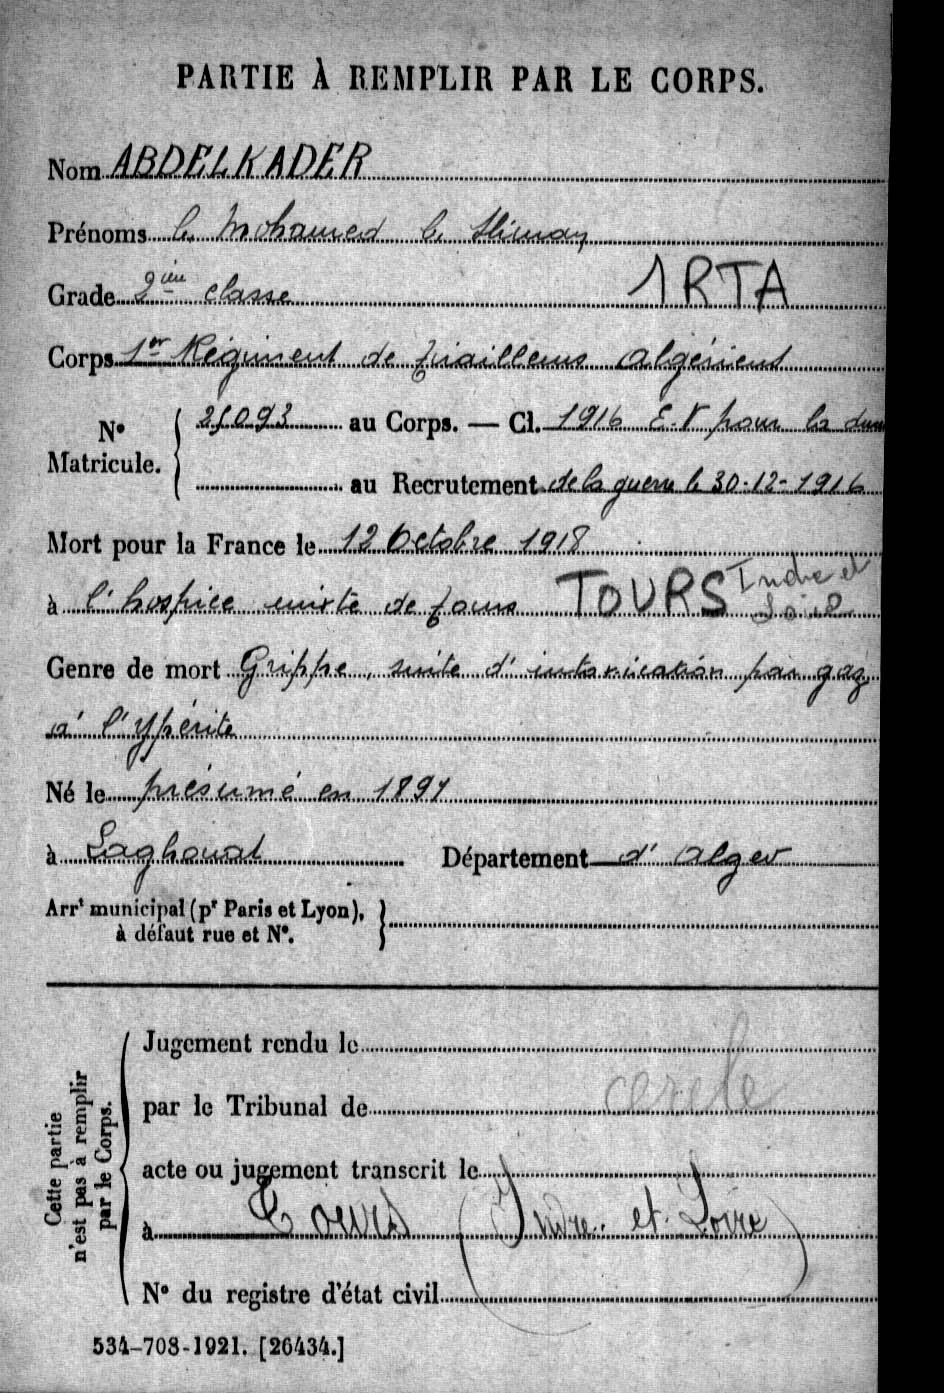 PARTIE À REMPLIR PAR LE CORPS.
Nom ABDELKADER
Prénoms b. Mohamed b. Sliman
Grade 2ième classe 1RTA
Corps 1er Régiment de tirailleurs algériens
N° Matricule. 25093 au Corps. — Cl. 1916 E.V pour la durée
au Recrutement de la guerre le 30-12-1916
Mort pour la France le 12 Octobre 1918
à l'hospice mixte de Tours TOURS Indre et Loire
Genre de mort Grippe, suite d'intoxication par gaz
à l'ypérite
Né le présumé en 1897
à Laghouat Département d'Alger
Arrt municipal (pr Paris et Lyon),
à défaut rue et N°.
Cette partie
n'est pas à remplir
par le Corps.
Jugement rendu le
par le Tribunal de cercle
acte ou jugement transcrit le
à Tours (Indre. et. Loire)
N° du registre d'état civil
534-708-1921. [26434.]